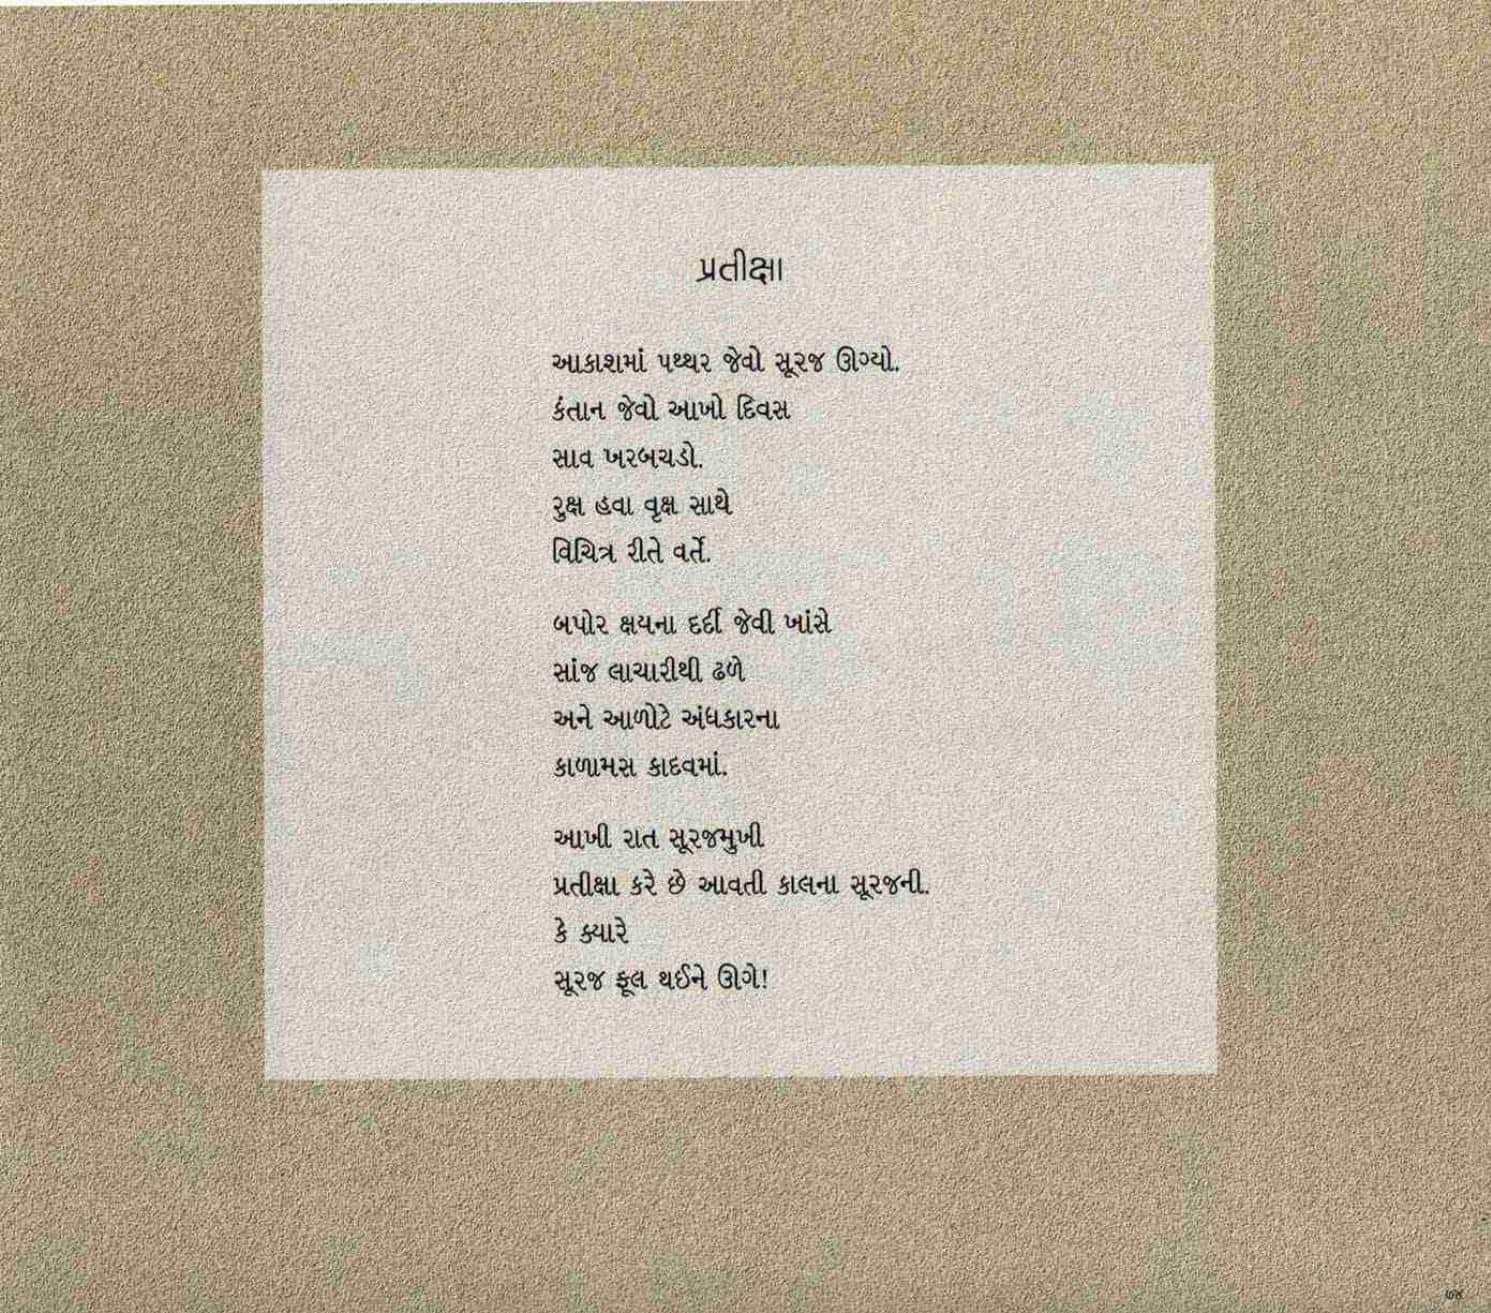 પ્રતીક્ષા
આકાશમાં પથ્થર જેવો સૂરજ ઊગ્યો.
કંતાન જેવો આખો દિવસ
સાવ ખરબચડો.
રુક્ષ હવા વૃક્ષ સાથે
વિચિત્ર રીતે વર્તે.
બપોર ક્ષયના દર્દી જેવી ખાંસે
સાંજ લાચારીથી ઢળે
અને આળોટે અંધકારના
કાળામસ કાદવમાં.
આખી રાત સૂરજમુખી
પ્રતીક્ષા કરે છે આવતી કાલના સૂરજની.
કે ક્યારે
સૂરજ ફૂલ થઈને ઊગે!